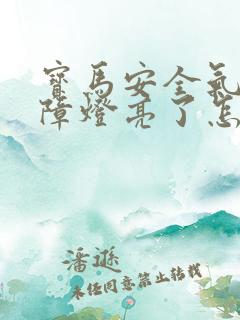 寶馬安全氣
障燈亮了怎
潘遜
未经同意禁止转载